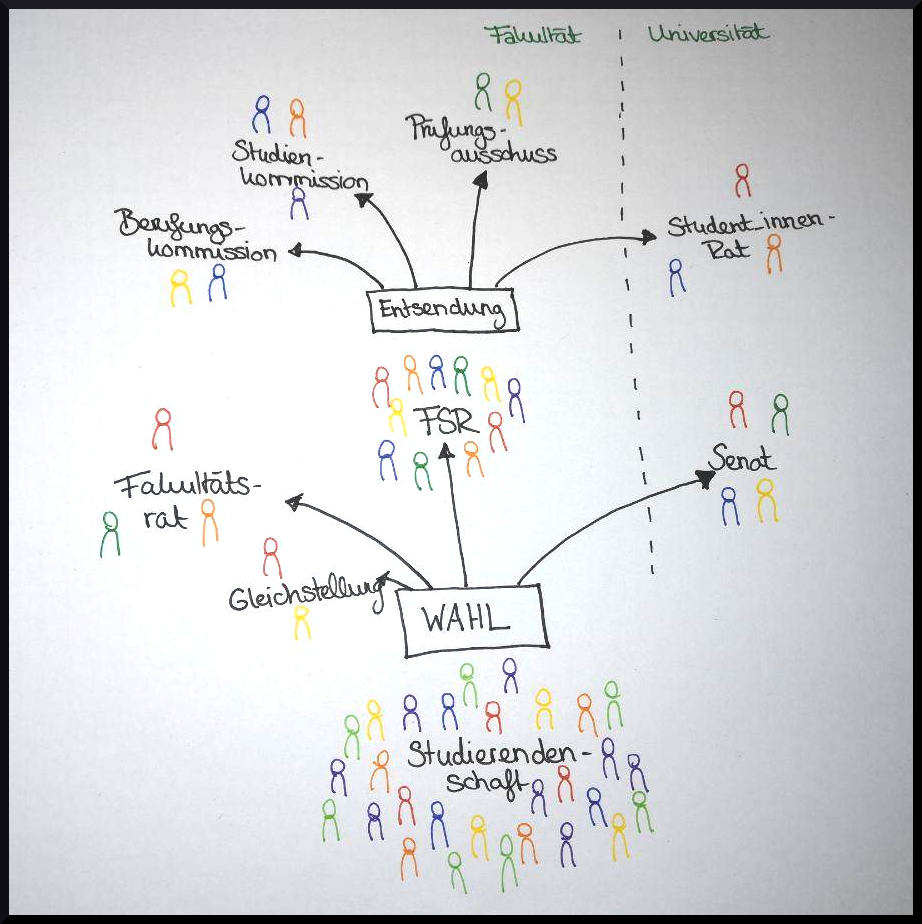 Fakultät
Universität
Prüfungs-
ausschuss
Studien-
kommission
Berufungs-
kommission
Student_innen-
Rat
Entsendung
FSR
Senat
Fakultäts-
rat
Gleichstellung
WAHL
Studierenden-
schaft